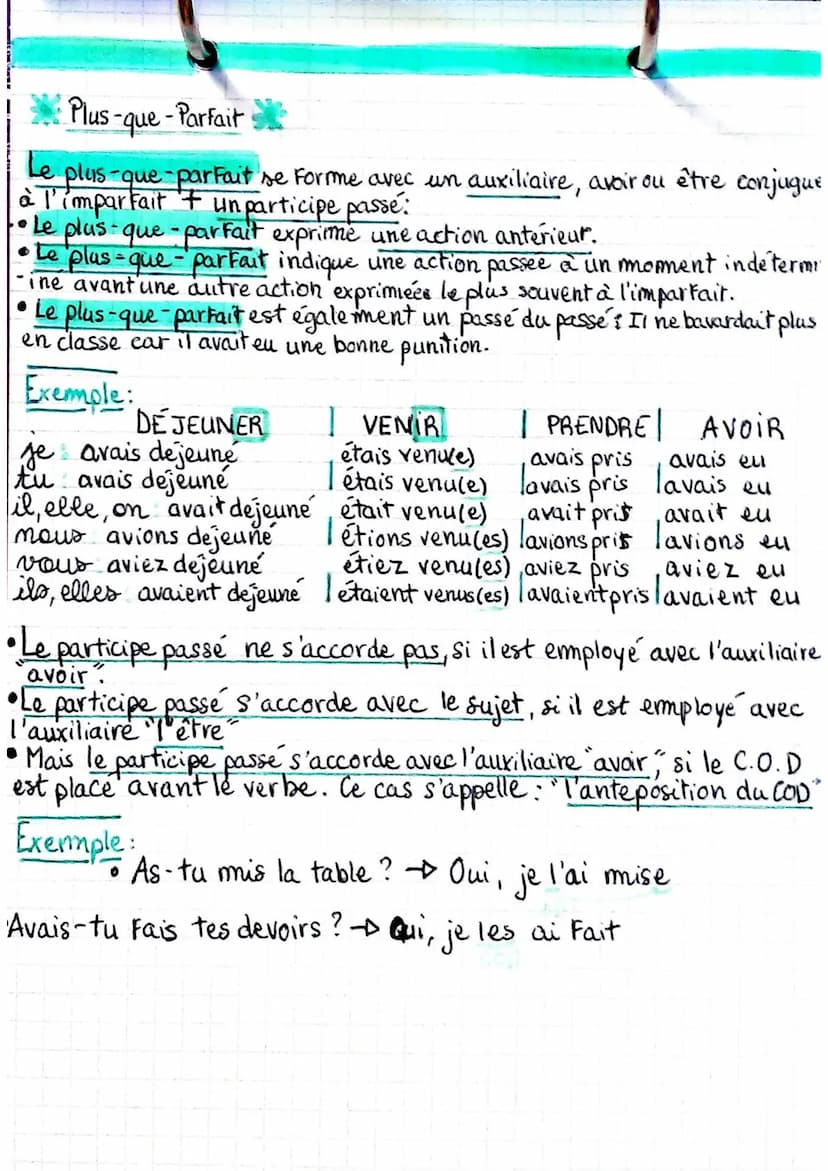 Plus-que-Parfait
Le plus-que-parfait se forme avec un auxiliaire, avoir ou être conjugue
à l'imparfait + un participe passé:
• Le plus-que-parfait exprime une action antérieur.
• Le plus-que-parfait indique une action passée à un moment indétermi
-iné avant une autre action exprimées le plus souvent à l'imparfait.
• Le plus-que-parfait est également un passé du passé: Il ne bavardait plus
en classe car il avait eu une bonne punition.
Exemple:
DÉJEUNER | VENIR | PRENDRE | AVOIR
je : avais dejeuné | étais venu(e) | avais pris | avais eu
tu : avais dejeuné | étais venu(e) | avais pris | avais eu
il, elle, on : avait dejeuné | était venu(e) | avait pris | avait eu
nous : avions dejeuné | Étions venu(es) | avions pris | avions eu
vous : aviez dejeuné | étiez venu(es) | aviez pris | aviez eu
ils, elles avaient dejeuné | étaient venus(es) | avaient pris | avaient eu
• Le participe passé ne s'accorde pas, si il est employé avec l'auxiliaire
"avoir".
• Le participe passé s'accorde avec le sujet, si il est employé avec
l'auxiliaire "l'être"
• Mais le participe passé s'accorde avec l'auxiliaire "avoir", si le C.O.D
est placé avant le verbe. Ce cas s'appelle : "l'anteposition du COD"
Exemple:
• As-tu mis la table ? → Oui, je l'ai mise
Avais-tu Fais tes devoirs ? → Oui, je les ai Fait